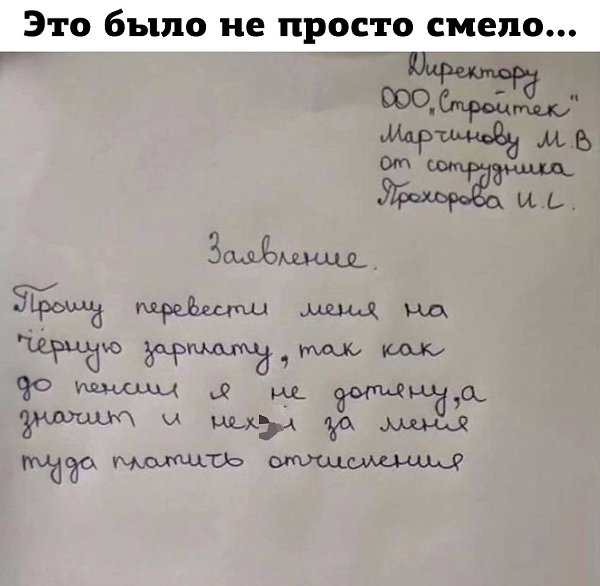 Это было не просто смело...
Директору
ООО „Стройтек"
Мартинову М.В
от сотрудника
Прохорова И.С.
Заявление.
Прошу перевести меня на
чёрную зарплату, так как
до пенсии я не дотяну, а
значит и за меня
туда платить отчисления